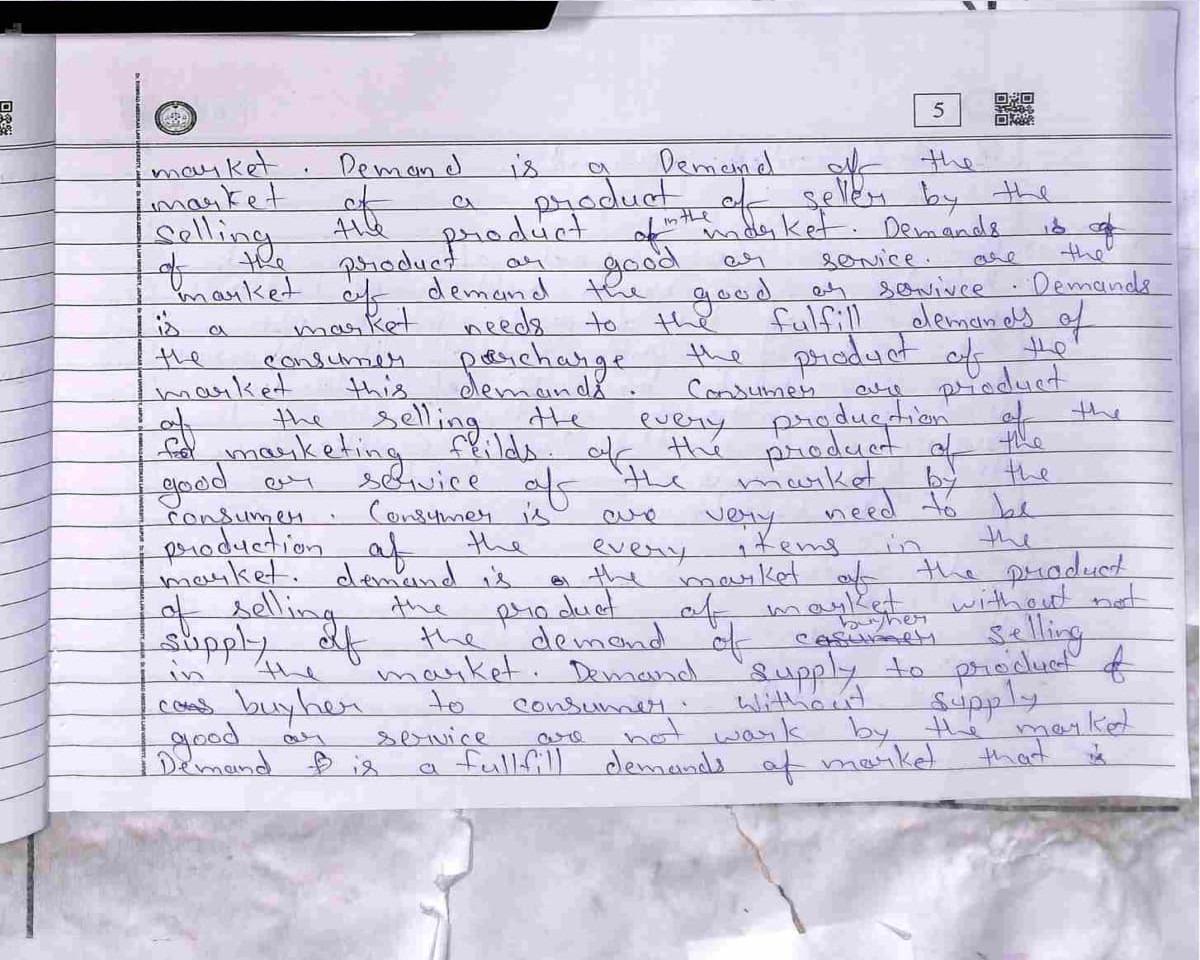 5
market. Demand is a Demand of the
market of a product of seller by the
selling the product of in the market. Demands is of
of the product or good or service. are the
market of demand the good or servivce. Demands
is a market needs to the fulfill demands of
the consumer percharge the product of the
market this demands. Consumer are product
of the selling the every production of the
marketing feilds. of the product of the
good or service of the market by the
consumer. Consumer is are very need to be
production of the every items in the
market. demand is a the market of the product
of selling the product of market without not
supply of the demand of buyher selling
in the market. Demand supply to product of
buyher to consumer. without supply
good or service are not wark by the market
Demand is a fullfill demands of market that is